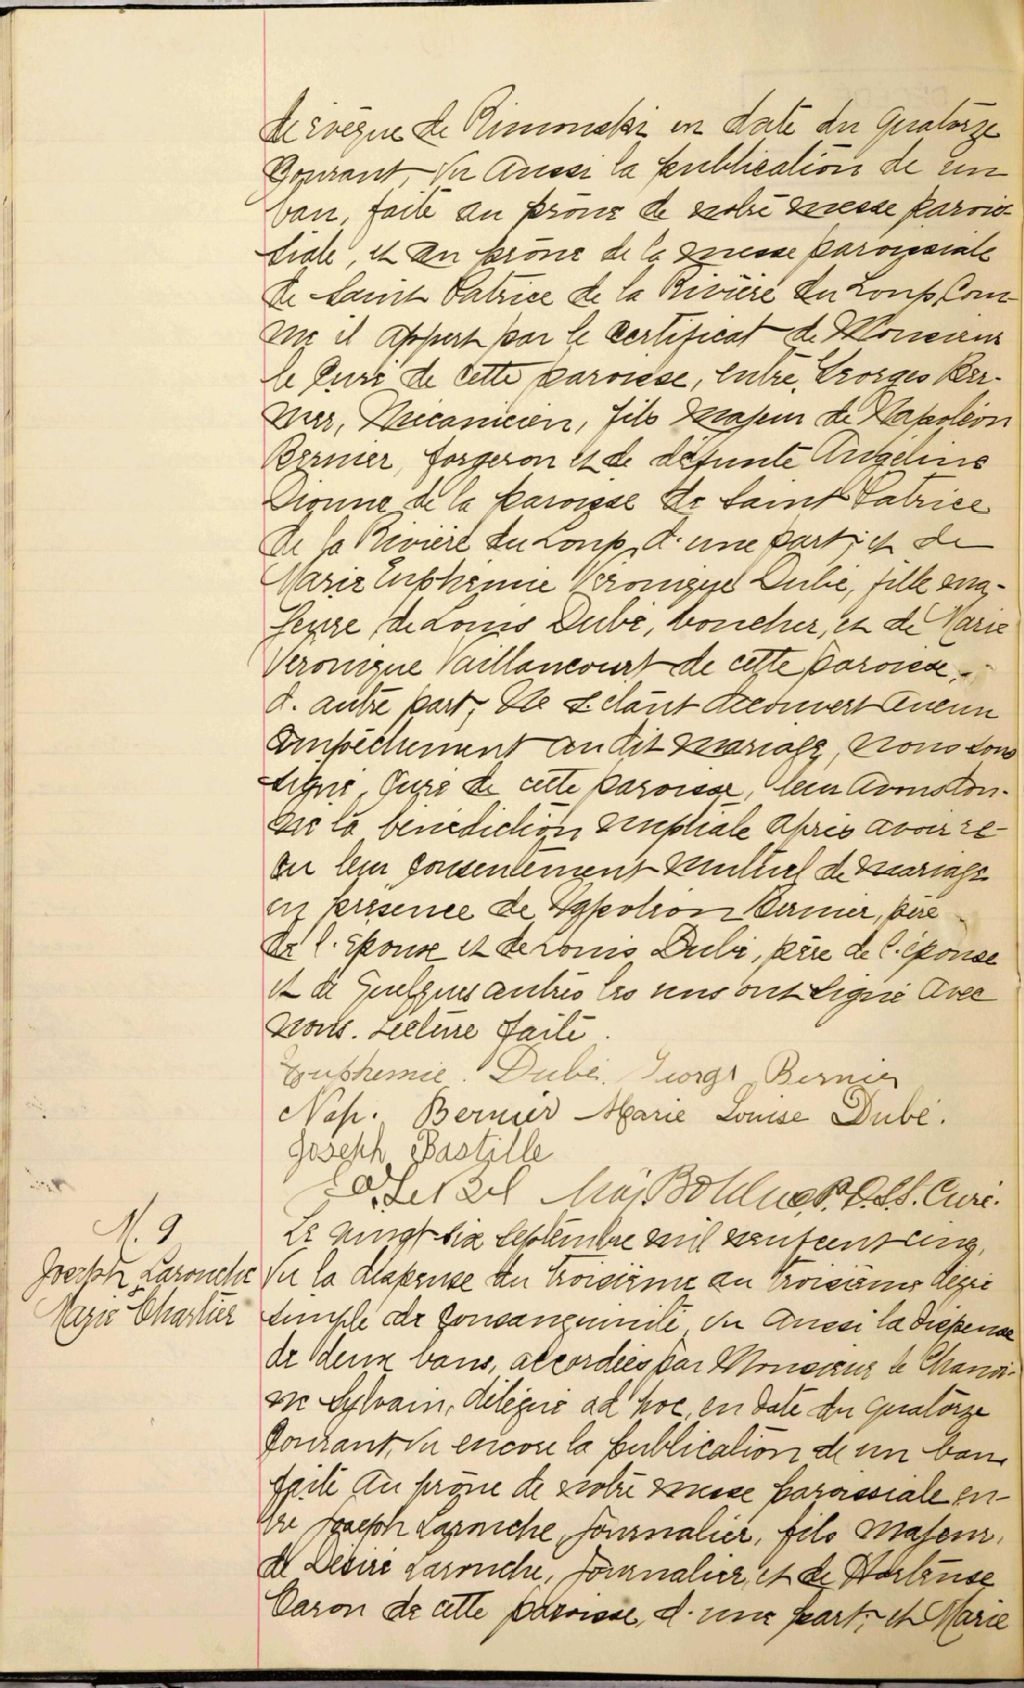 de Evêque de Rimouski en date du quatorze
courant, Vu aussi la publication de un
ban, faite au prône de notre messe parois-
siale, et au prône de la messe paroissiale
de Saint Patrice de la Rivière du Loup, com-
me il appert par le certificat de Monsieur
le Curé de cette paroisse, entre Georges Ber-
nier, Mécanicien, fils majeur de Napoléon
Bernier, forgeron et de défunte Angéline
Dionne de la paroisse de Saint Patrice
de la Rivière du Loup, d'une part, et de
Marie Euphémie Véronique Dubé, fille ma-
jeure de Louis Dubé, boucher, et de Marie
Véronique Vaillancourt de cette paroisse,
d'autre part, Ne s'étant découvert aucun
empêchement au dit mariage, nous sous
signé, Curé de cette paroisse, leur avons don-
né la bénédiction nuptiale après avoir re-
çu leur consentement mutuel de mariage
en présence de Napoléon Bernier, père
de l'époux et de Louis Dubé, père de l'épouse
et de quelques autres les uns ont signé avec
nous. Lecture faite.
Euphemie. Dubé. George Bernier
Nap. Bernier Marie Louise Dubé.
Joseph Bastille
LeBel Maj. Bolduc P. D. S. S. Curé.
N. 9
Joseph Larouche
&
Marie Chartier
Le vingt six septembre mil neuf cent cinq,
Vu la dispense du troisième au troisième dégré
simple de consanguinité, vu aussi la dispense
de deux bans, accordées par Monsieur le Chanoi-
ne Sylvain, délégué ad hoc, en date du quatorze
courant, vu encore la publication de un ban
faite au prône de notre messe paroissiale en-
tre Joseph Larouche, journalier, fils majeur,
de Désiré Larouche, journalier, et de Hortense
Caron de cette paroisse, d'une part, et Marie